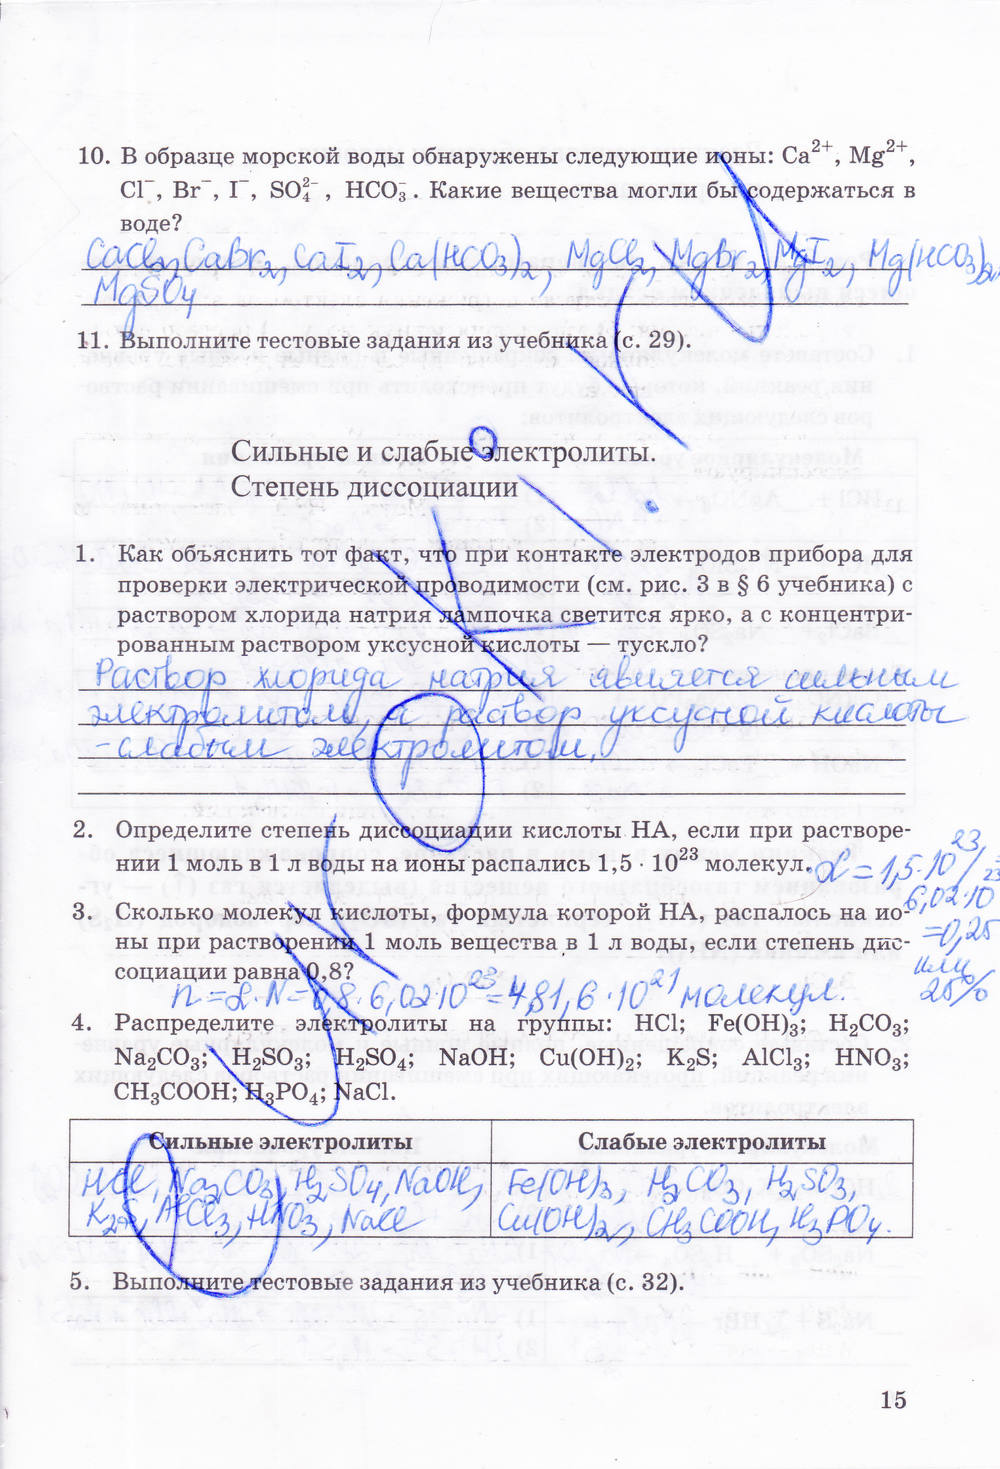 10. В образце морской воды обнаружены следующие ионы: Ca²⁺, Mg²⁺,
Cl⁻, Br⁻, I⁻, SO₄²⁻, HCO₃⁻. Какие вещества могли бы содержаться в
воде?
CaCl₂, CaBr₂, CaI₂, Ca(HCO₃)₂, MgCl₂, MgBr₂, MgI₂, Mg(HCO₃)₂,
MgSO₄
11. Выполните тестовые задания из учебника (с. 29).
Сильные и слабые электролиты.
Степень диссоциации
1. Как объяснить тот факт, что при контакте электродов прибора для
проверки электрической проводимости (см. рис. 3 в § 6 учебника) с
раствором хлорида натрия лампочка светится ярко, а с концентри-
рованным раствором уксусной кислоты — тускло?
Раствор хлорида натрия является сильным
электролитом, а раствор уксусной кислоты
- слабым электролитом.
2. Определите степень диссоциации кислоты HA, если при растворе-
нии 1 моль в 1 л воды на ионы распались 1,5 · 10²³ молекул.
α = 1,5·10²³/
6,02·10²³
=0,25
или
25%
3. Сколько молекул кислоты, формула которой HA, распалось на ио-
ны при растворении 1 моль вещества в 1 л воды, если степень дис-
социации равна 0,8?
n = α·N = 0,8·6,02·10²³ = 481,6·10²¹ молекул.
4. Распределите электролиты на группы: HCl; Fe(OH)₃; H₂CO₃;
Na₂CO₃; H₂SO₃; H₂SO₄; NaOH; Cu(OH)₂; K₂S; AlCl₃; HNO₃;
CH₃COOH; H₃PO₄; NaCl.
Сильные электролиты
Слабые электролиты
HCl, Na₂CO₃, H₂SO₄, NaOH,
K₂S, AlCl₃, HNO₃, NaCl
Fe(OH)₃, H₂CO₃, H₂SO₃,
Cu(OH)₂, CH₃COOH, H₃PO₄.
5. Выполните тестовые задания из учебника (с. 32).
15